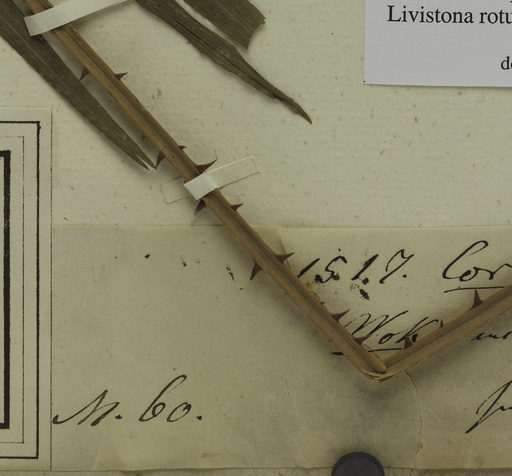 Livistona rotu
de
1517. Cor
Wok
M. 60.